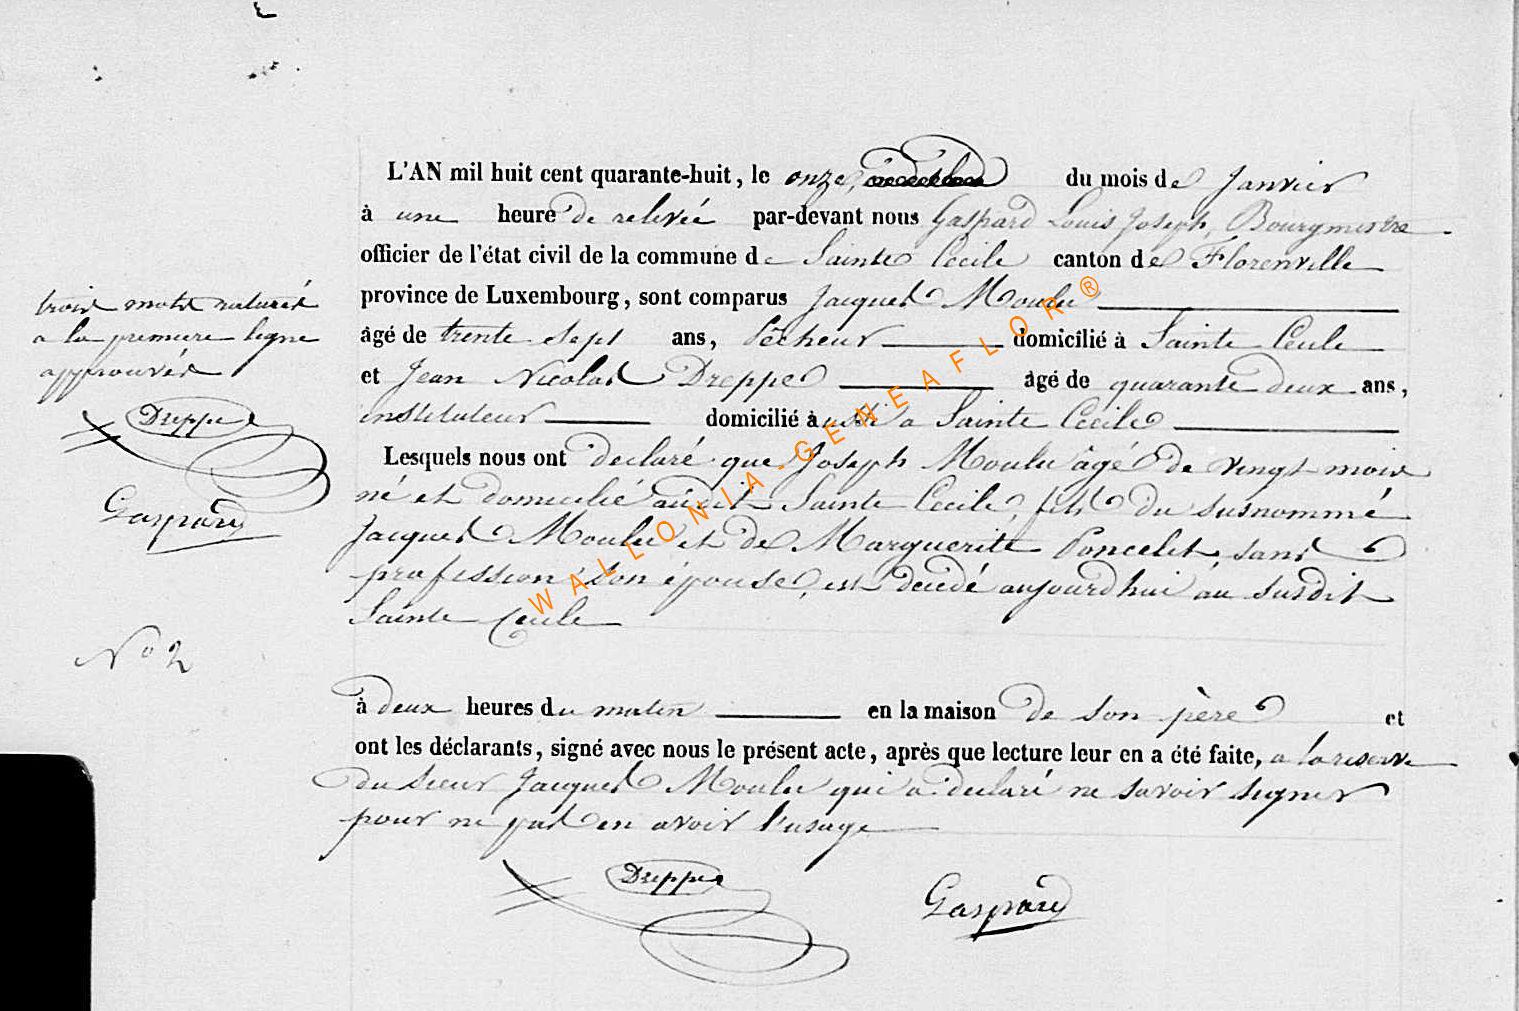 L'AN mil huit cent quarante-huit, le onze, du mois de Janvier
à une heure de relevée par-devant nous Gaspard Louis Joseph, Bourgmestre
officier de l'état civil de la commune de Sainte Cécile canton de Florenville
province de Luxembourg, sont comparus Jacques Moulu
âgé de trente sept ans, Pêcheur domicilié à Sainte Cecile
et Jean Nicolas Dreppe âgé de quarante deux ans,
instituteur domicilié aussi a Sainte Cécile
Lesquels nous ont declaré que Joseph Moulu âgé de vingt mois
né et domicilié audit Sainte Cecile, fils du susnommé
Jacques Moulu et de Marguerite Poncelet, sans
profession son épouse, est decedé aujourd'hui au susdit
Sainte Cecile
à deux heures du matin en la maison de son père et
ont les déclarants, signé avec nous le présent acte, après que lecture leur en a été faite, a la reserve
du sieur Jacques Moulu qui a declaré ne savoir signer
pour ne pas en avoir l'usage
Dreppe
Gaspard
trois mots raturés
a la premiere ligne
approuvés
Dreppe
Gaspard
No 2
WALLONIA-GENEAFLOR ®